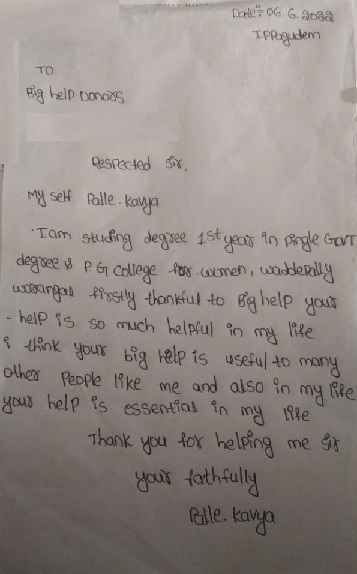 Date:- 06.6.2022
IPPagudem
TO
Big help Donors
Respected Sir,
My self Palle.Kavya
I am studing degree 1st year in pingle GovT
degree & P.G College for women, wadderally
warangal firstly thankful to Big help your
- help is so much helpful in my life
i think your big help is useful to many
other People like me and also in my life
your help is essential in my life
Thank you for helping me sir
your fathfully
Palle.Kavya